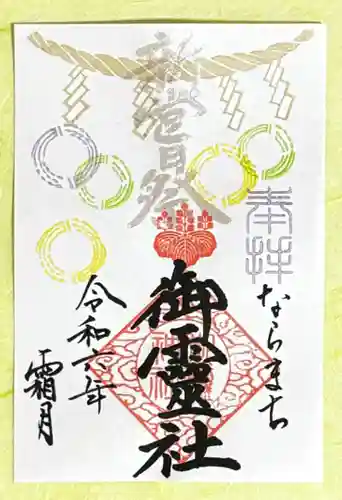 新嘗祭
奉拝
ならまち
御靈社
令和六年
霜月